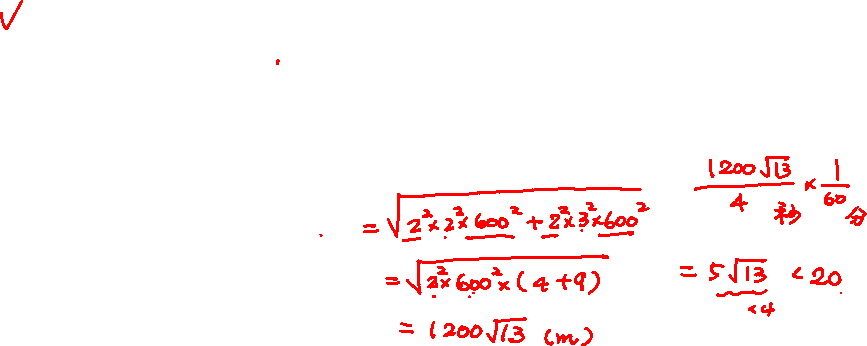 √
= √(2²×2²×600² + 2²×3²×600²)
= √(2²×600²×(4+9))
= 1200√13 (m)
1200√13/4 秒 × 1/60 分
= 5√13 < 20
<4